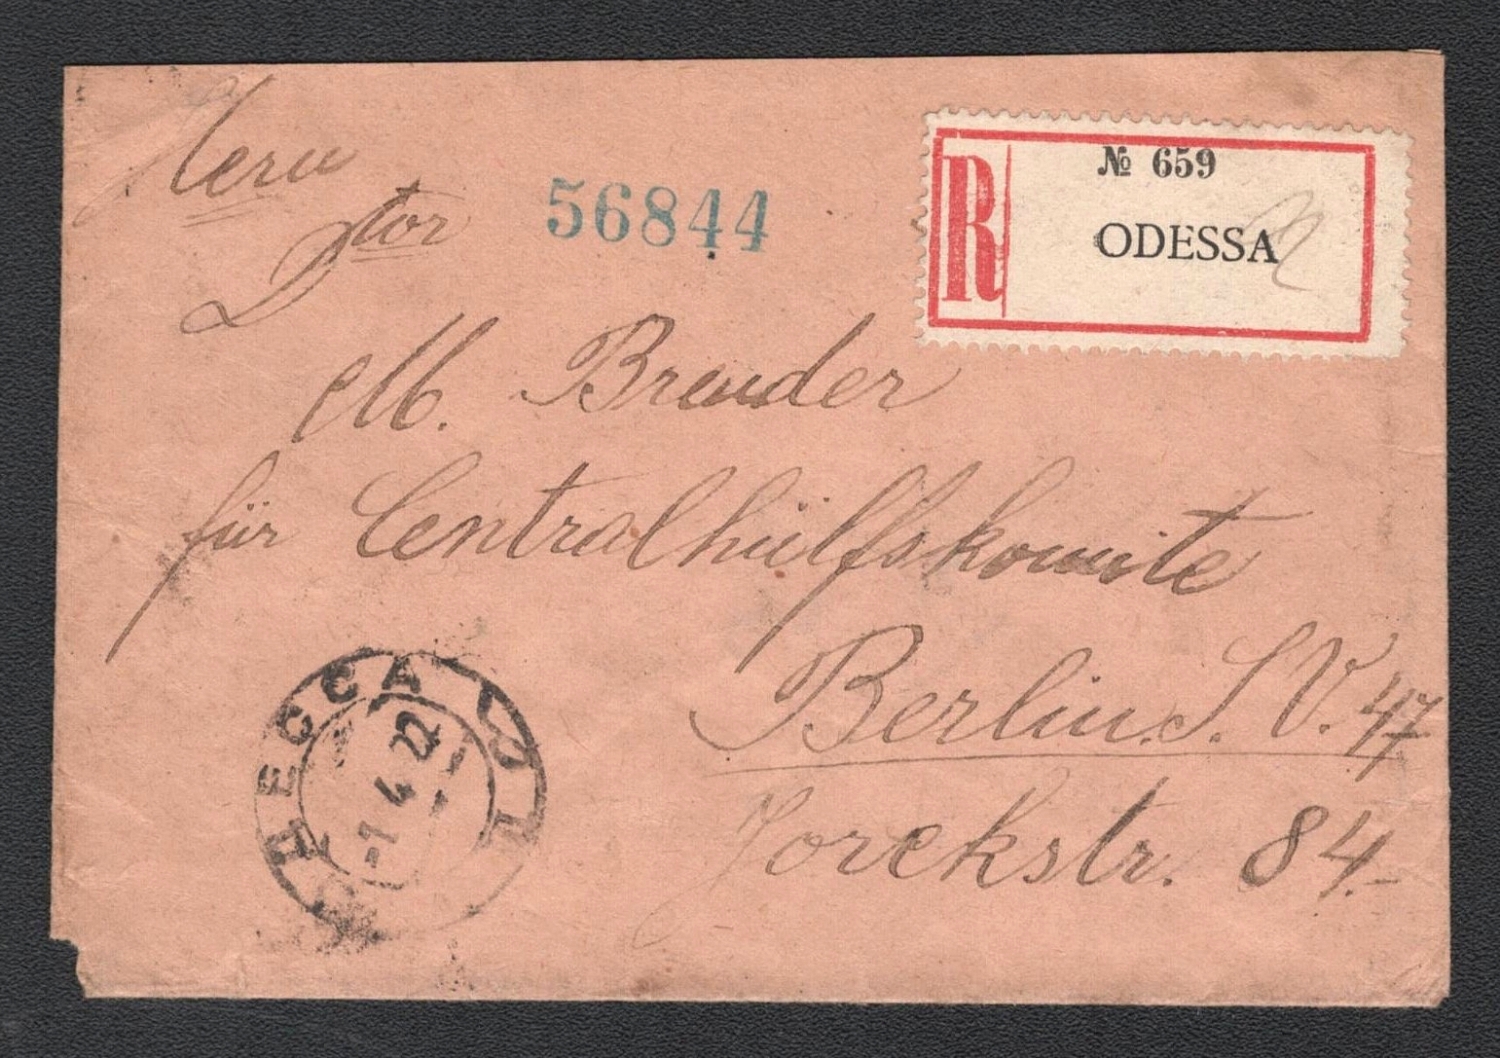 Herrn
Dtor
56844
R
№ 659
ODESSA
M. Brauder
für Centralhülfskomite
Berlin. S. V. 47
Yorckstr. 84.-
ОДЕССА
-1 4 22